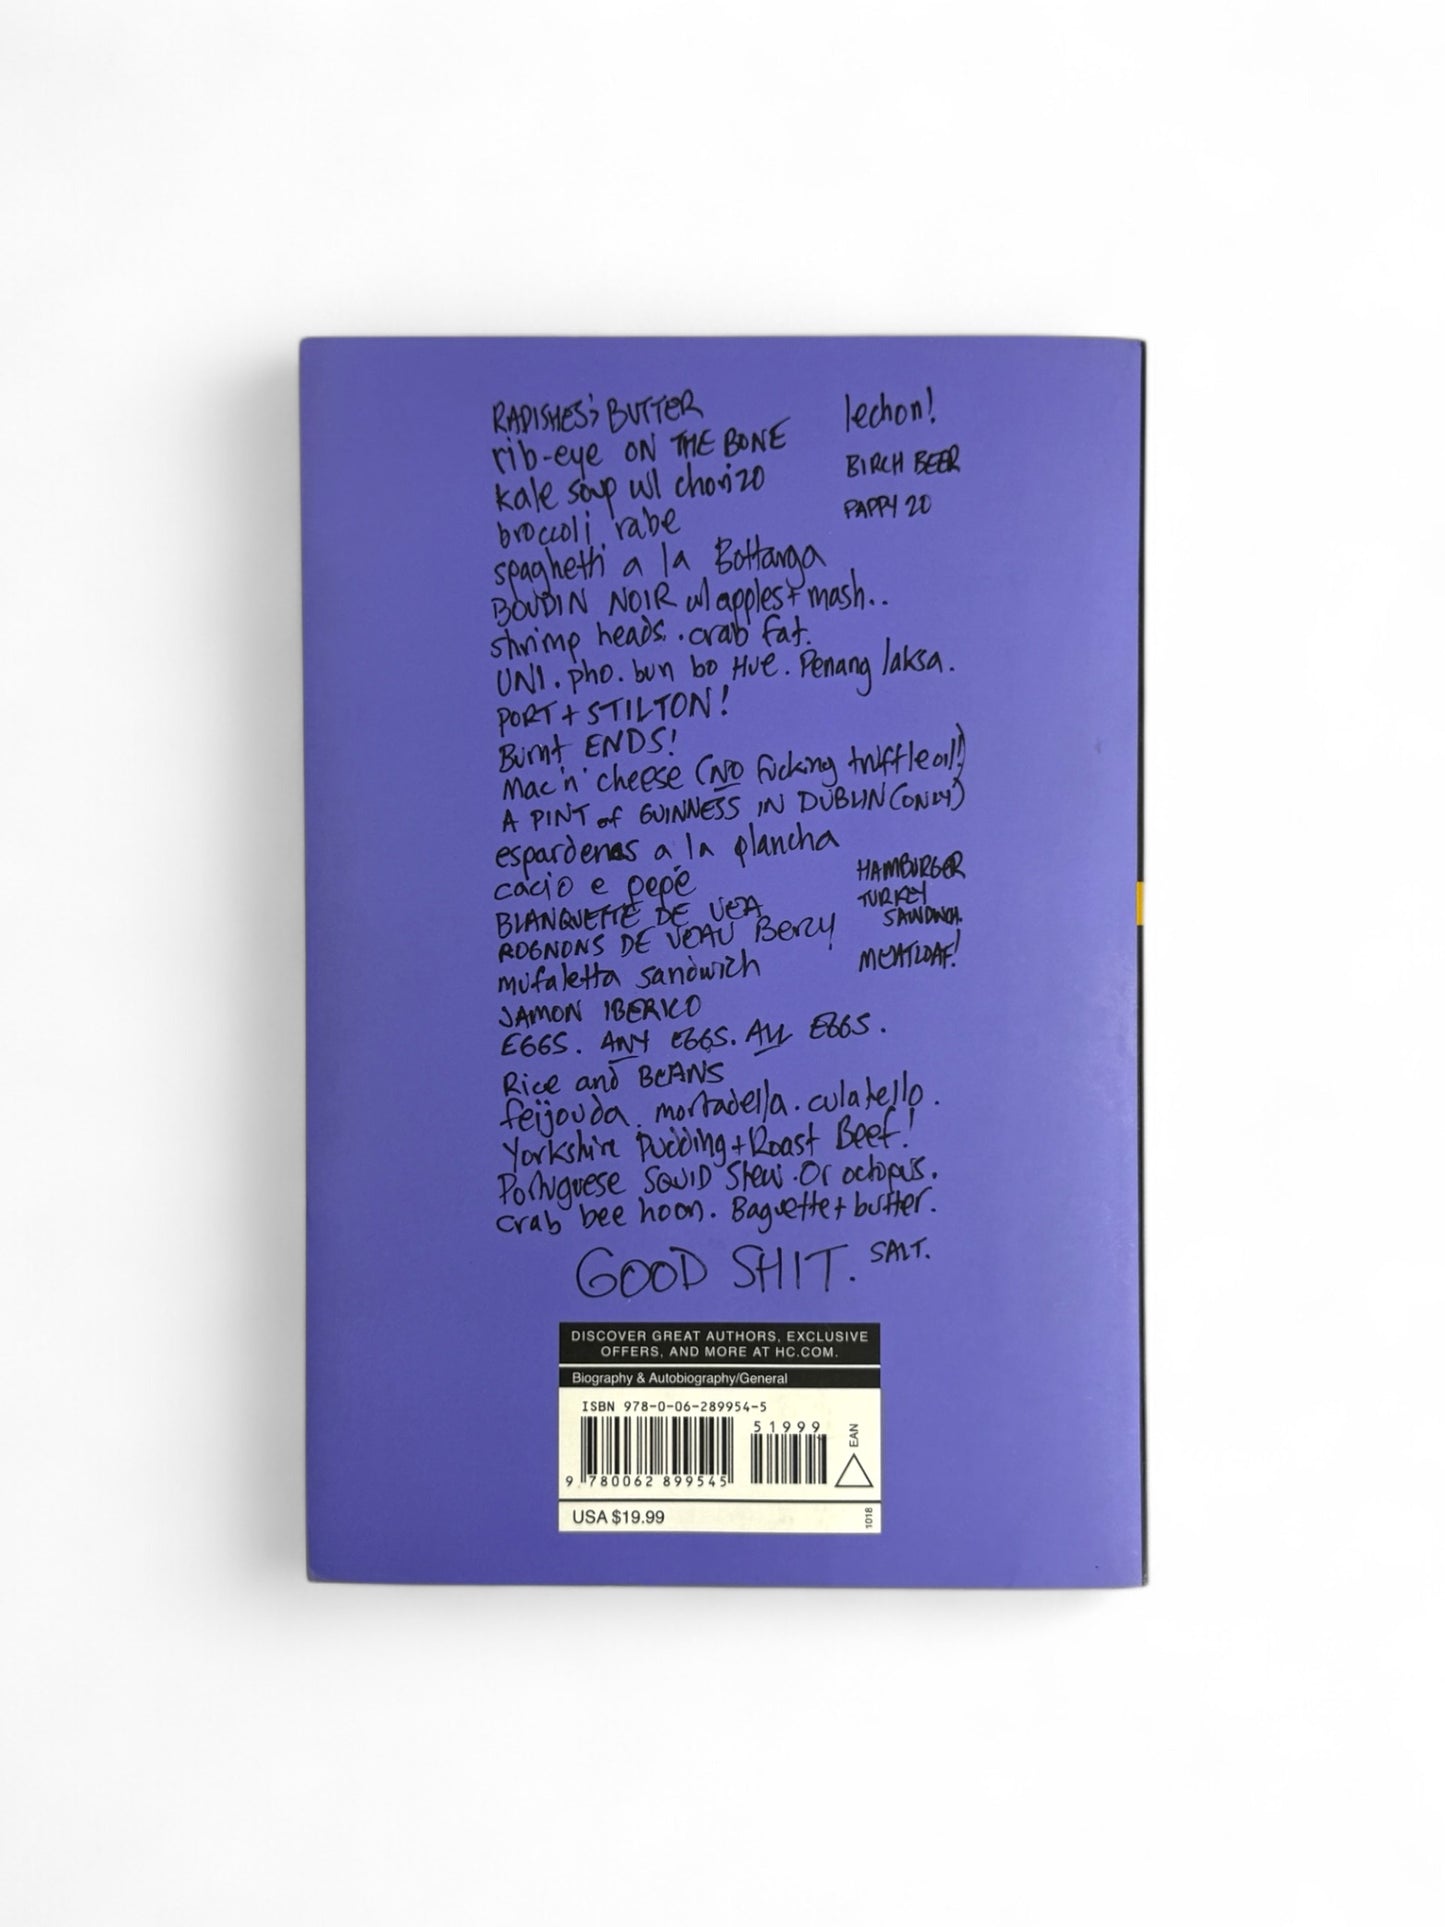 RADISHES & BUTTER
lechon!
rib-eye ON THE BONE
BIRCH BEER
kale soup w/ chorizo
PAPPY 20
broccoli rabe
spaghetti a la Bottarga
BOUDIN NOIR w/ apples + mash..
shrimp heads. crab fat.
UNI. pho. bun bo Hue. Penang laksa.
PORT + STILTON!
Burnt ENDS!
Mac 'n' cheese (NO fucking truffle oil!)
A PINT of GUINNESS IN DUBLIN (ONLY)
espardenas a la plancha
cacio e pepe
HAMBURGER
TURKEY
SANDWICH.
MEATLOAF!
BLANQUETTE DE VEA
ROGNONS DE VEAU Bercy
mufaletta sandwich
JAMON IBERICO
EGGS. ANY EGGS. ALL EGGS.
Rice and BEANS
feijouda. mortadella. culatello.
Yorkshire Pudding + Roast Beef!
Portuguese SQUID Stew. Or octopus.
crab bee hoon. Baguette + butter.
GOOD SHIT. SALT.
DISCOVER GREAT AUTHORS, EXCLUSIVE
OFFERS, AND MORE AT HC.COM.
Biography & Autobiography/General
ISBN 978-0-06-289954-5
51999
EAN
9 780062 899545
USA $19.99
1018